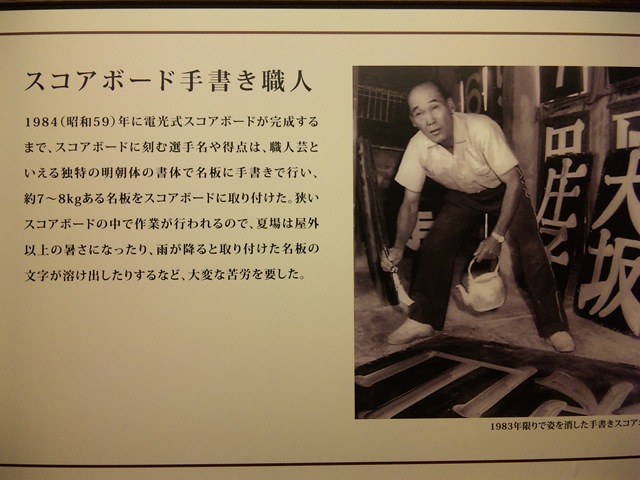 スコアボード手書き職人
1984（昭和59）年に電光式スコアボードが完成する
まで、スコアボードに刻む選手名や得点は、職人芸と
いえる独特の明朝体の書体で名板に手書きで行い、
約7〜8kgある名板をスコアボードに取り付けた。狭い
スコアボードの中で作業が行われるので、夏場は屋外
以上の暑さになったり、雨が降ると取り付けた名板の
文字が溶け出したりするなど、大変な苦労を要した。
大阪
1983年限りで姿を消した手書きスコアボ